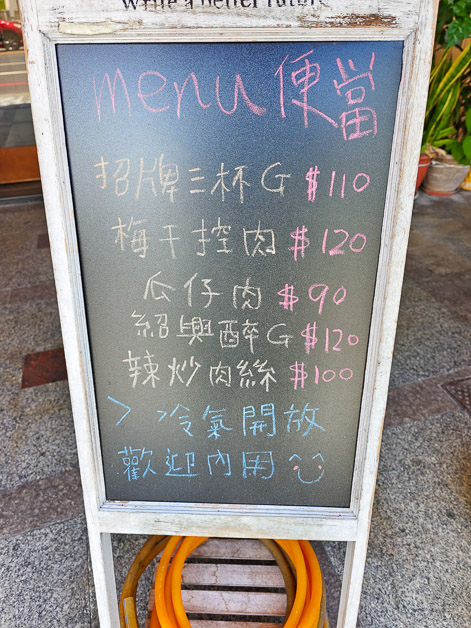 Write a better future
menu 便當
招牌三杯G $110
梅干控肉 $120
瓜仔肉 $90
紹興醉G $120
辣炒肉絲 $100
> 冷氣開放
歡迎內用